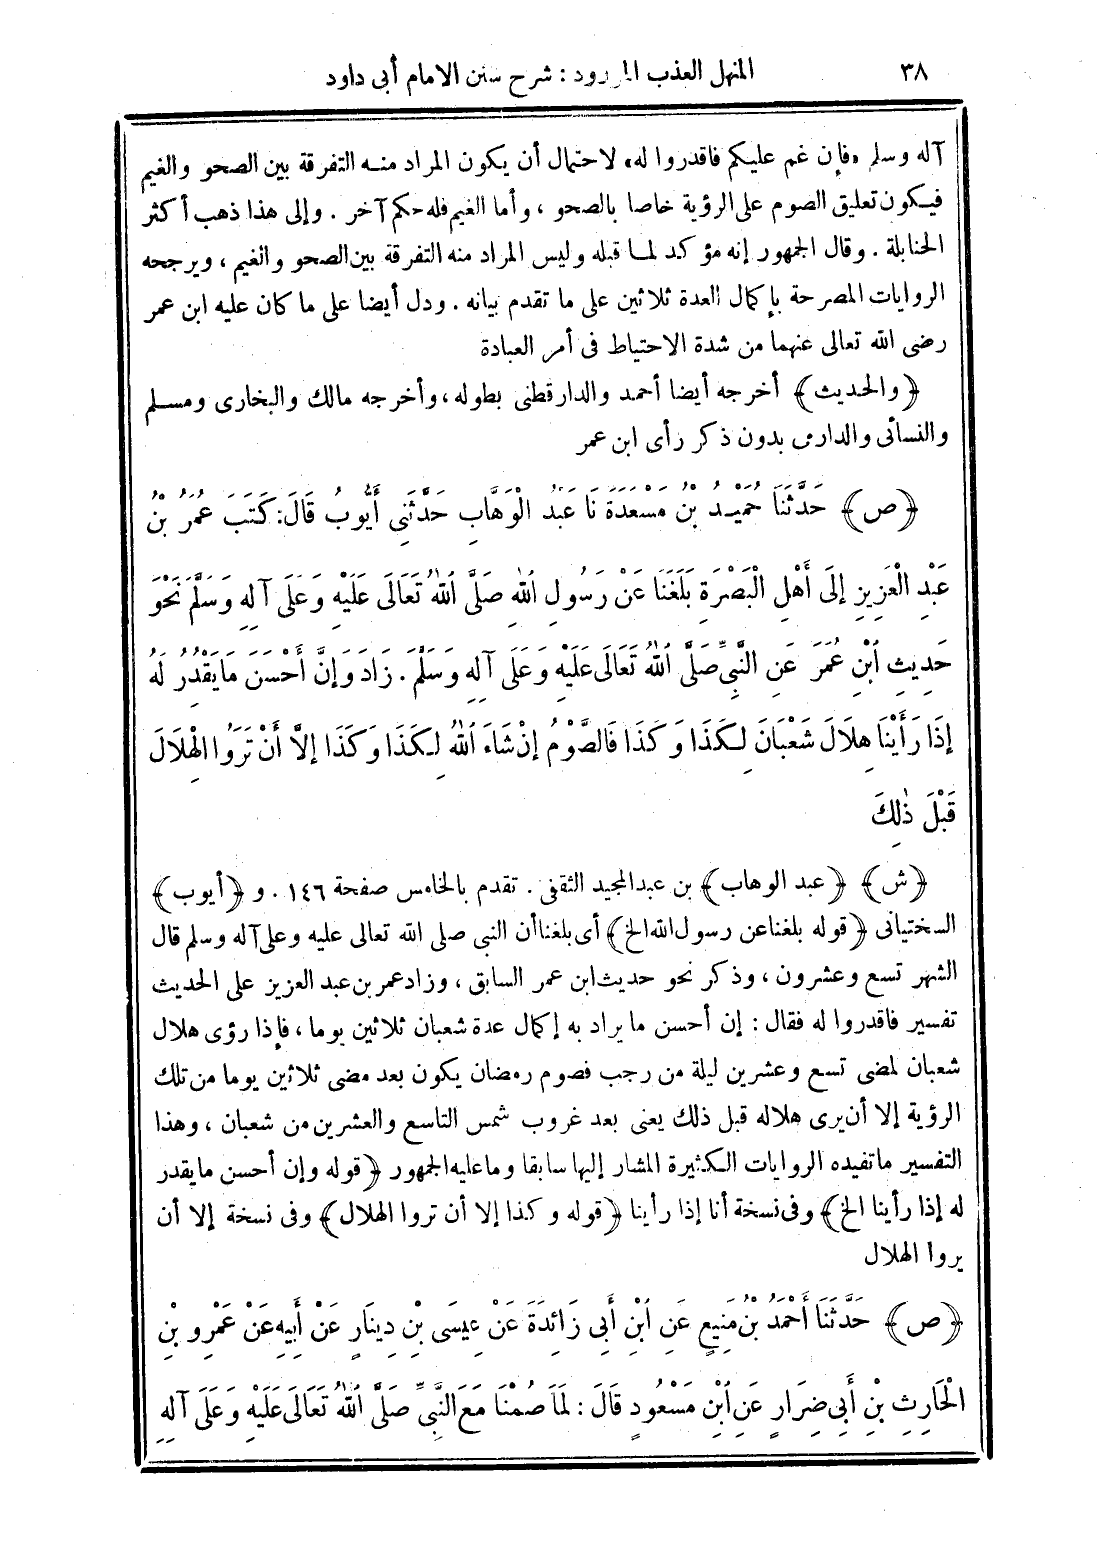 ٣٨ المنهل العذب المورود : شرح سنن الامام أبى داود
آله وسلم «فإن غم عليكم فاقدروا له» لاحتمال أن يكون المراد منه التفرقة بين الصحو والغيم
فيكون تعليق الصوم على الرؤية خاصا بالصحو ، وأما الغيم فله حكم آخر . وإلى هذا ذهب أكثر
الحنابلة . وقال الجمهور إنه مؤكد لما قبله وليس المراد منه التفرقة بين الصحو والغيم ، ويرجحه
الروايات المصرحة بإكمال العدة ثلاثين على ما تقدم بيانه . ودل أيضا على ما كان عليه ابن عمر
رضى الله تعالى عنهما من شدة الاحتياط فى أمر العبادة
﴿والحديث﴾ أخرجه أيضا أحمد والدارقطنى بطوله ، وأخرجه مالك والبخارى ومسلم
والنسائى والدارمى بدون ذكر رأى ابن عمر
﴿ص﴾ حَدَّثَنَا حُمَيْدُ بْنُ مَسْعَدَةَ نَا عَبْدُ الْوَهَّابِ حَدَّثَنِى أَيُّوبُ قَالَ: كَتَبَ عُمَرُ بْنُ
عَبْدِ الْعَزِيزِ إِلَى أَهْلِ الْبَصْرَةِ بَلَغَنَا عَنْ رَسُولِ اللهِ صَلَّى اللهُ تَعَالَى عَلَيْهِ وَعَلَى آلِهِ وَسَلَّمَ نَحْوَ
حَدِيثِ ابْنِ عُمَرَ عَنِ النَّبِىِّ صَلَّى اللهُ تَعَالَى عَلَيْهِ وَعَلَى آلِهِ وَسَلَّمَ . زَادَ وَإِنَّ أَحْسَنَ مَا يُقْدَرُ لَهُ
إِذَا رَأَيْنَا هِلَالَ شَعْبَانَ لِكَذَا وَكَذَا فَالصَّوْمُ إِنْ شَاءَ اللهُ لِكَذَا وَكَذَا إِلَّا أَنْ تَرَوُا الْهِلَالَ
قَبْلَ ذٰلِكَ
﴿ش﴾ ﴿عبد الوهاب﴾ بن عبد المجيد الثقفى . تقدم بالخامس صفحة ١٤٦ . و ﴿أيوب﴾
السختيانى ﴿قوله بلغنا عن رسول الله الخ﴾ أى بلغنا أن النبى صلى الله تعالى عليه وعلى آله وسلم قال
الشهر تسع وعشرون ، وذكر نحو حديث ابن عمر السابق ، وزاد عمر بن عبد العزيز على الحديث
تفسير فاقدروا له فقال : إن أحسن ما يراد به إكمال عدة شعبان ثلاثين يوما ، فإذا رؤى هلال
شعبان لمضى تسع وعشرين ليلة من رجب فصوم رمضان يكون بعد مضى ثلاثين يوما من تلك
الرؤية إلا أن يرى هلاله قبل ذلك يعنى بعد غروب شمس التاسع والعشرين من شعبان ، وهذا
التفسير ما تفيده الروايات الكثيرة المشار إليها سابقا وما عليه الجمهور ﴿قوله وإن أحسن ما يقدر
له إذا رأينا الخ﴾ وفى نسخة أنا إذا رأينا ﴿قوله وكذا إلا أن تروا الهلال﴾ وفى نسخة إلا أن
يروا الهلال
﴿ص﴾ حَدَّثَنَا أَحْمَدُ بْنُ مَنِيعٍ عَنِ ابْنِ أَبِى زَائِدَةَ عَنْ عِيسَى بْنِ دِينَارٍ عَنْ أَبِيهِ عَنْ عَمْرِو بْنِ
الْحَارِثِ بْنِ أَبِى ضِرَارٍ عَنِ ابْنِ مَسْعُودٍ قَالَ : لَمَا صُمْنَا مَعَ النَّبِىِّ صَلَّى اللهُ تَعَالَى عَلَيْهِ وَعَلَى آلِهِ